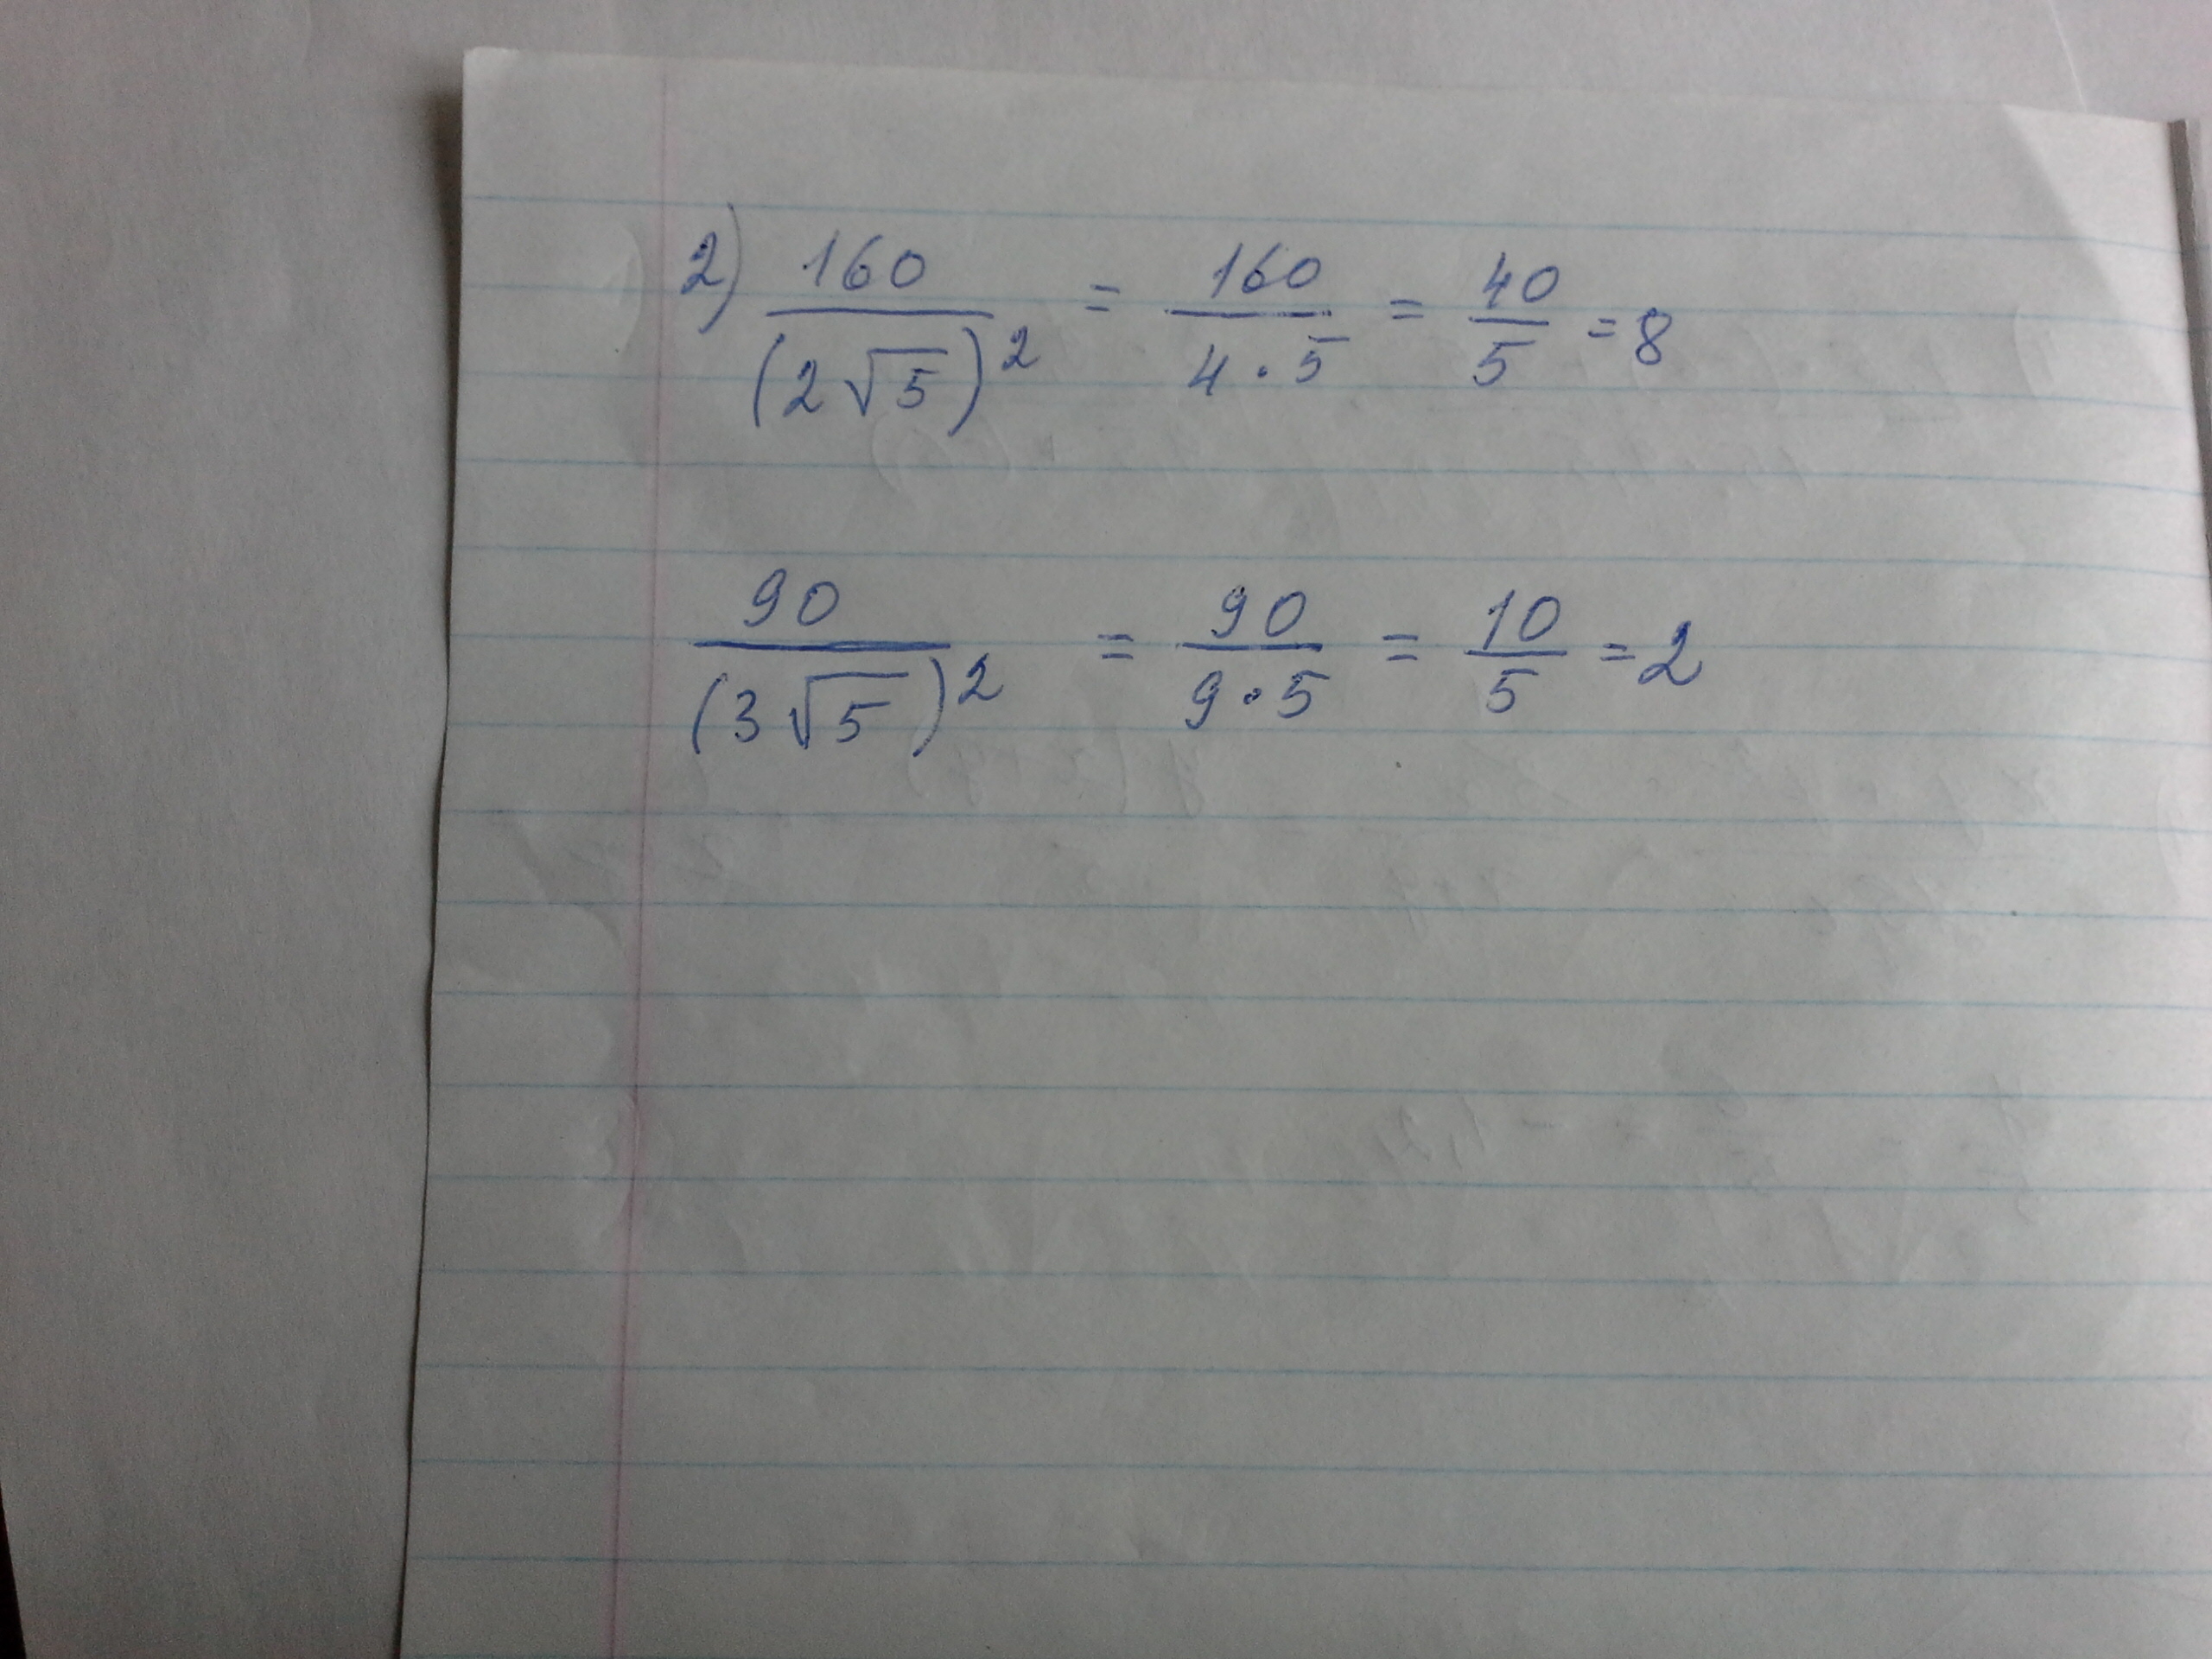 2) 160/(2√5)² = 160/(4·5) = 40/5 = 8
90/(3√5)² = 90/(9·5) = 10/5 = 2